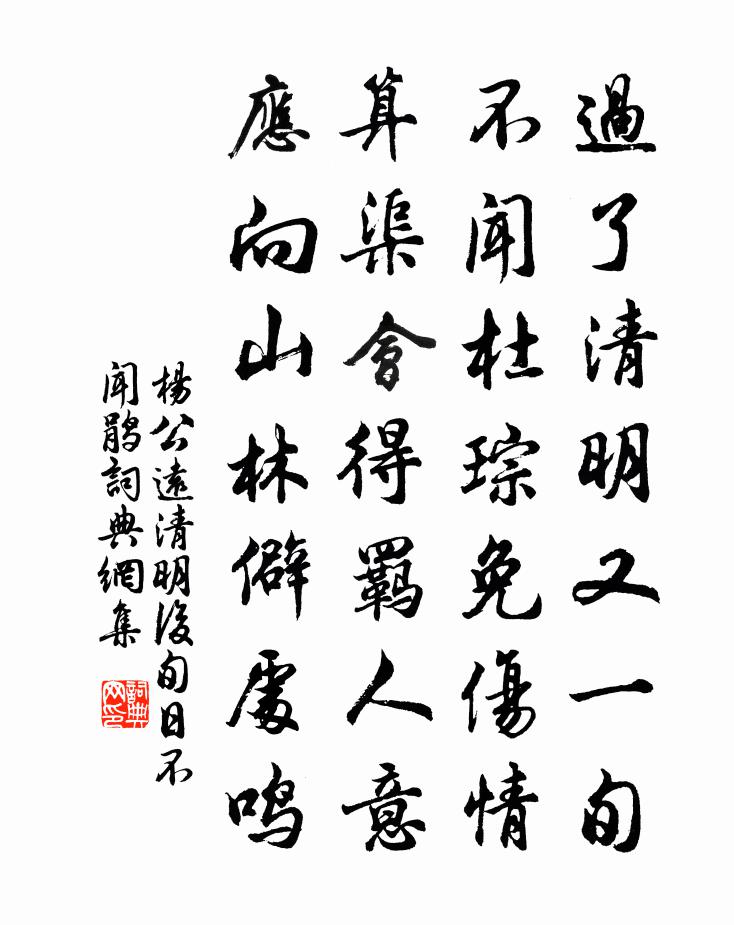 過了清明又一旬
不闻杜琮免傷情
算渠會得羁人意
應向山林僻處鸣
楊公遠清明後旬日不
闻鹃詞典網集
詞典網印